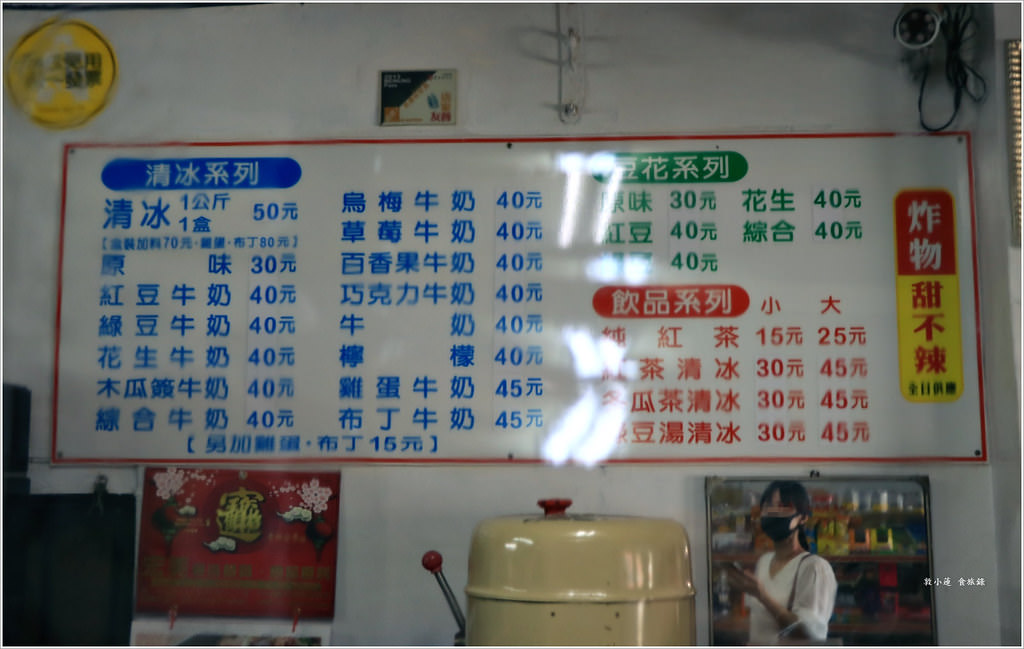 清冰系列
清冰 1公斤 1盒 50元
【盒裝加料70元・雞蛋・布丁80元】
原味 30元
紅豆牛奶 40元
綠豆牛奶 40元
花生牛奶 40元
木瓜簽牛奶 40元
綜合牛奶 40元
烏梅牛奶 40元
草莓牛奶 40元
百香果牛奶 40元
巧克力牛奶 40元
牛奶 40元
檸檬 40元
雞蛋牛奶 45元
布丁牛奶 45元
【另加雞蛋・布丁15元】
豆花系列
原味 30元 花生 40元
紅豆 40元 綜合 40元
40元
飲品系列 小 大
純紅茶 15元 25元
茶清冰 30元 45元
冬瓜茶清冰 30元 45元
綠豆湯清冰 30元 45元
炸物
甜不辣
全日供應
敦小蓮 食旅錄